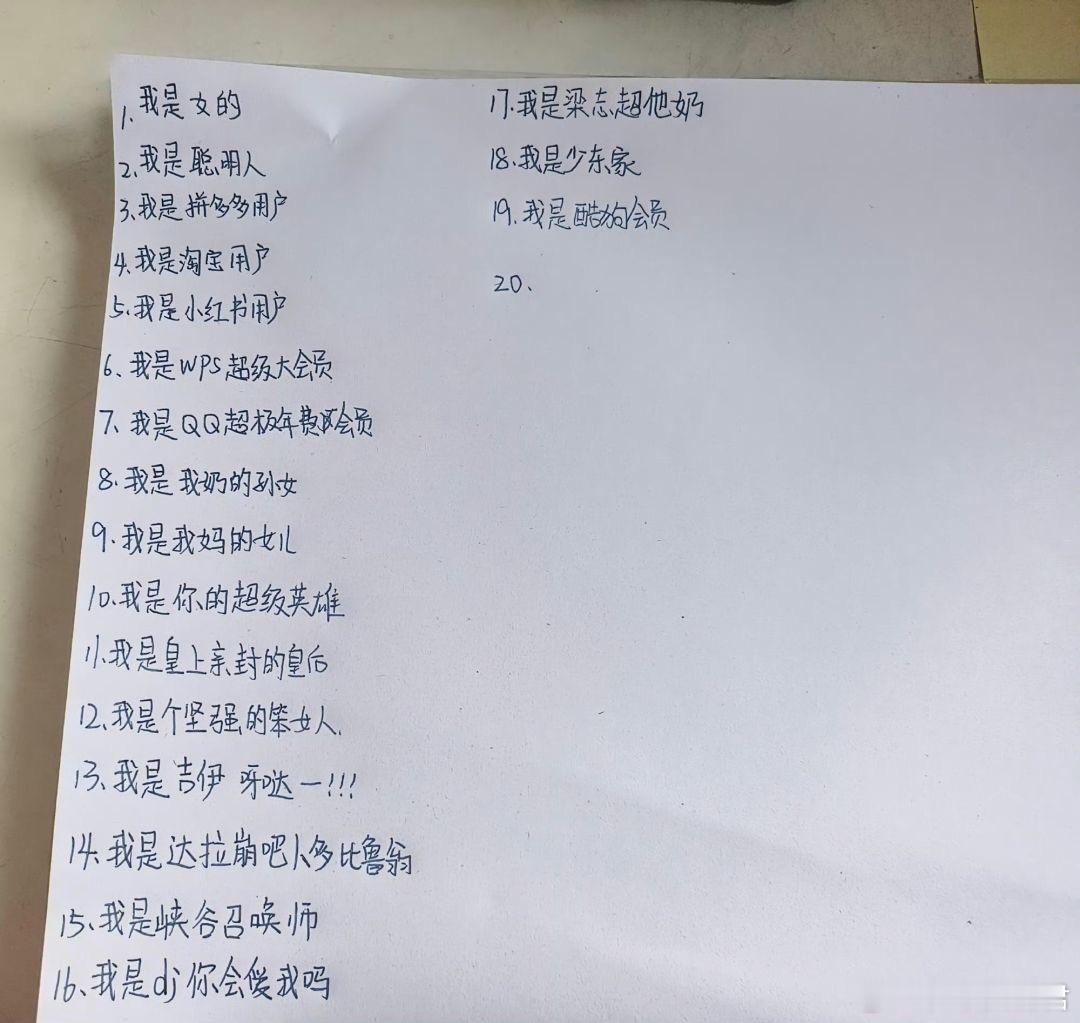 1、我是女的
2、我是聪明人
3、我是拼多多用户
4、我是淘宝用户
5、我是小红书用户
6、我是WPS超级大会员
7、我是QQ超极年费会员
8、我是我奶的孙女
9、我是我妈的女儿
10、我是你的超级英雄
11、我是皇上亲封的皇后
12、我是个坚强的笨女人.
13、我是吉伊 呀哒一!!!
14、我是达拉崩吧卜多比鲁翁
15、我是峡谷召唤师
16、我是dj你会爱我吗
17、我是梁志超他奶
18、我是少东家
19、我是酷狗会员
20、